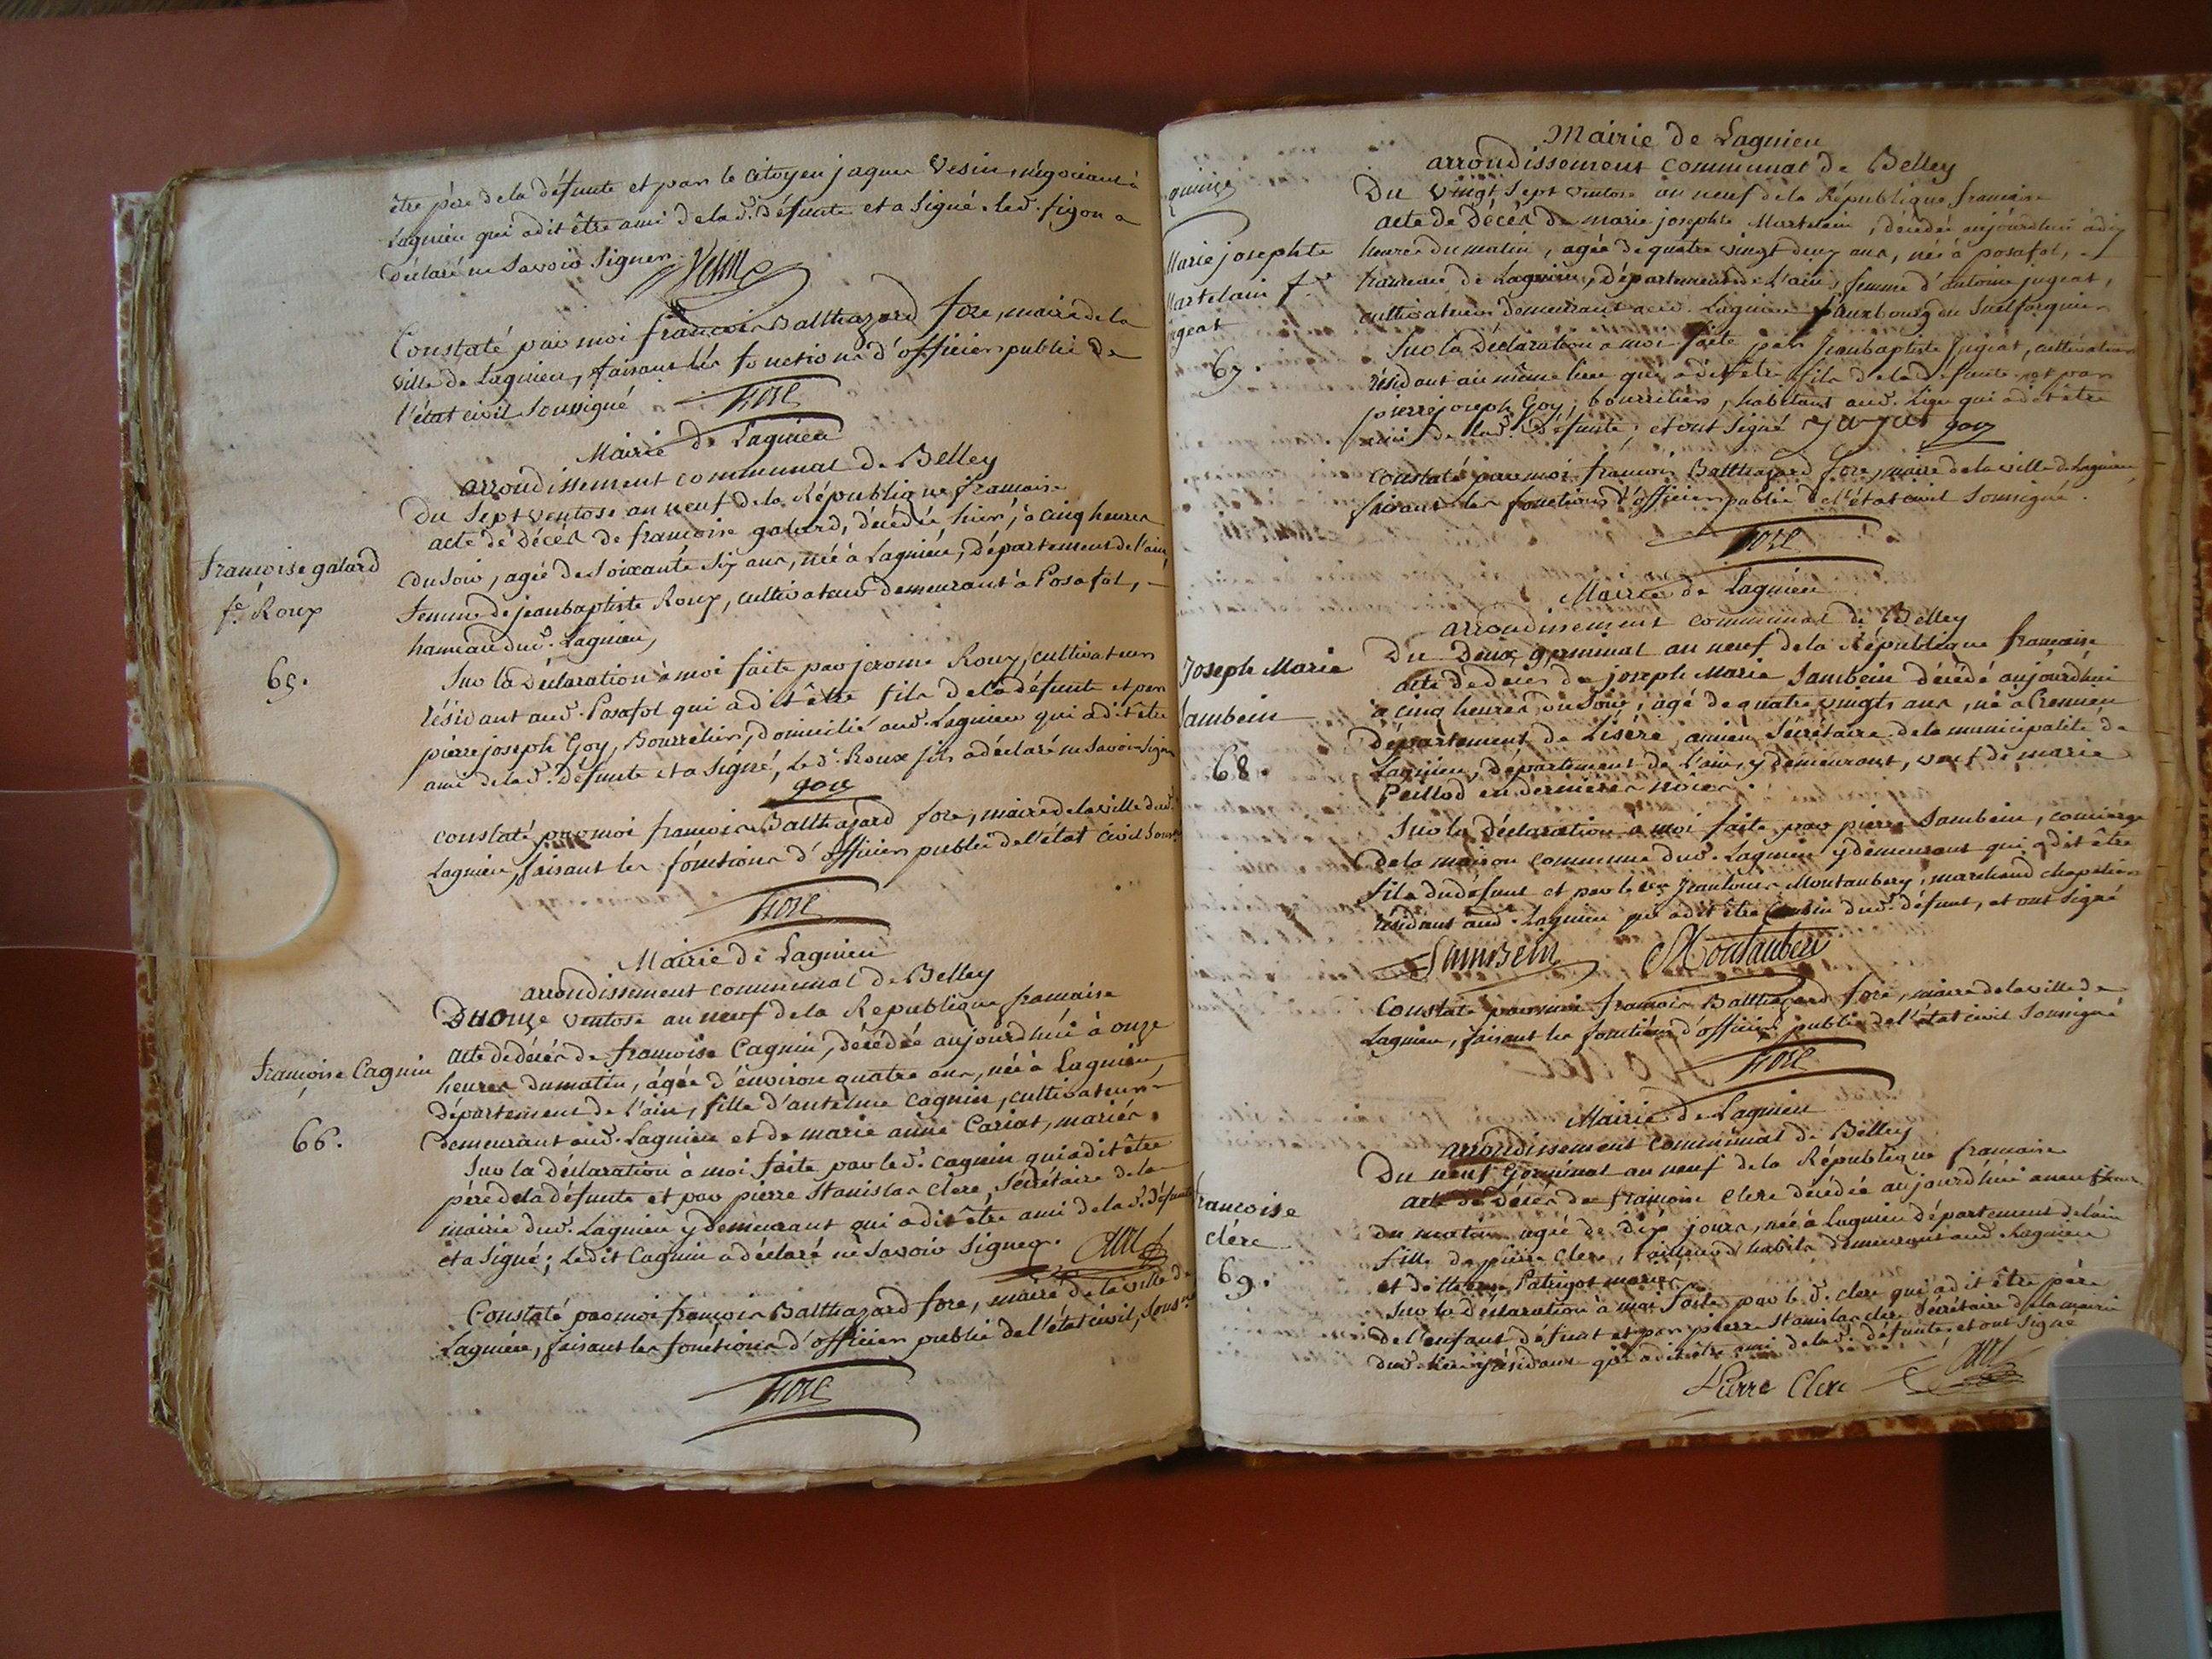 être père dela défunte et par le citoyen jaques Vesin, négociant à
Lagnieu qui a dit être ami dela d. défunte et a signé. led. figon a
déclaré ne savoir signer. Vesin
Constaté par moi françois Balthazard fore, maire dela
ville de Lagnieu, faisant les fonctions d'officier public de
l'état civil soussigné
Fore
Mairie de Lagnieu
arrondissement communal de Belley
Du sept ventose an neuf dela République francaise
acte de décès de francoise galard, décédée hier, à cinq heures
du soir, agée de soixante six ans, née à Lagnieu, département de l'ain,
femme de jeanbaptiste Roux, cultivateur demeurant à Posafol,
hameau dud. Lagnieu,
francoise galard
fe. Roux
65.
Sur la déclaration à moi faite par jerome Roux, cultivateur
résidant aud. Posafol qui a dit être fils dela défunte et par
pierre joseph Goy, Bourrelier, domicilié aud. Lagnieu qui a dit être
ami dela d. défunte et a signé, Led. Roux fils a déclaré ne savoir signer
goy
constaté par moi francois Balthazard fore, maire dela ville dud.
Lagnieu, faisant les fonctions d'officier public del'état civil sous.né
Fore
Mairie de Lagnieu
arrondissement communal de Belley
Du onze ventose an neuf dela Republique francaise
acte de décès de francoise Cagnin, décédée aujourdhui à onze
heures du matin, agée d'environ quatre ans, née à Lagnieu
département de l'ain, fille d'antelme cagnin, cultivateur
demeurant aud. Lagnieu et de marie anne Cariat, mariés.
françoise Cagnin
66.
Sur la déclaration à moi faite par led. cagnin qui a dit être
père dela défunte et par pierre stanislas clerc, secrétaire dela
mairie dud. Lagnieu y demeurant qui a dit être ami dela d. défunte
et a signé; Ledit Cagnin a déclaré ne savoir signer. Clerc
Constaté par moi françois Balthazard fore, maire dela ville de
Lagnieu, faisant les fonctions d'officier public de l'état civil, sous.né
Fore
quinze
Mairie de Lagnieu
arrondissement communal de Belley
Du vingt sept ventose an neuf dela République francaise
acte de décès de marie josephte Martelain, décédée aujourdhui à dix
heures du matin, agée de quatre vingt deux ans, née à posafol,
hameau de Lagnieu, département de L'ain, femme d'antoine jugeat,
cultivateur demeurant aud. Lagnieu fauxbourg du
Marie josephte
Martelain fe.
jugeat
67.
Sur la déclaration a moi faite par jeanbaptiste jugeat, cultivateur
résidant au même lieu qui a dit être fils dela défunte et par
pierre joseph Goy, bourrelier, habitant aud. lieu qui a dit être
ami dela d. défunte, et ont signé jugeat goy
constaté par moi francois Balthazard fore, maire dela ville de Lagnieu
faisant les fonctions d'officier public de l'état civil soussigné.
Fore
Mairie de Lagnieu
arrondissement communal de Belley
Du deux germinal an neuf dela République francaise
acte de décès de joseph Marie Sambein décédé aujourdhui
à cinq heures du soir, agé de quatre vingts ans, né à Cremieu
département de Lisère, ancien sécrétaire dela municipalité de
Lagnieu, département de l'ain, y demeurant, veuf de marie
Peillod en dernieres nôces.
Joseph Marie
Sambein
68.
Sur la déclaration à moi faite par pierre Sambein, concierge
dela maison commune dud. Lagnieu y demeurant qui a dit être
fils du défunt et par le cen jeanlouis Montaubery, marchand chapelier
résidant aud. Lagnieu qui a dit être cousin dud. défunt, et ont signé
Sambein Montaubery
Constaté par moi francois Balthazard fore, maire dela ville de
Lagnieu, faisant les fonctions d'officier public del'état civil soussigné
Fore
Mairie de Lagnieu
arrondissement communal de Belley
Du neuf germinal an neuf de la République francaise
acte de décès de francoise clerc décédée aujourdhui a neuf heures
du matin agée de dix jours, née à Lagnieu département de lain
fille de pierre clerc, tailleur d'habits demeurant aud. Lagnieu
et de Patrigot mariés.
francoise
clerc
69.
Sur la déclaration à moi faite par le d. clerc qui a dit être père
de l'enfant défunt et par pierre stanislas clerc sécrétaire dela mairie
dud. lieu y résidant qui a dit être ami dela d. défunte et ont signé
Pierre Clerc Clerc